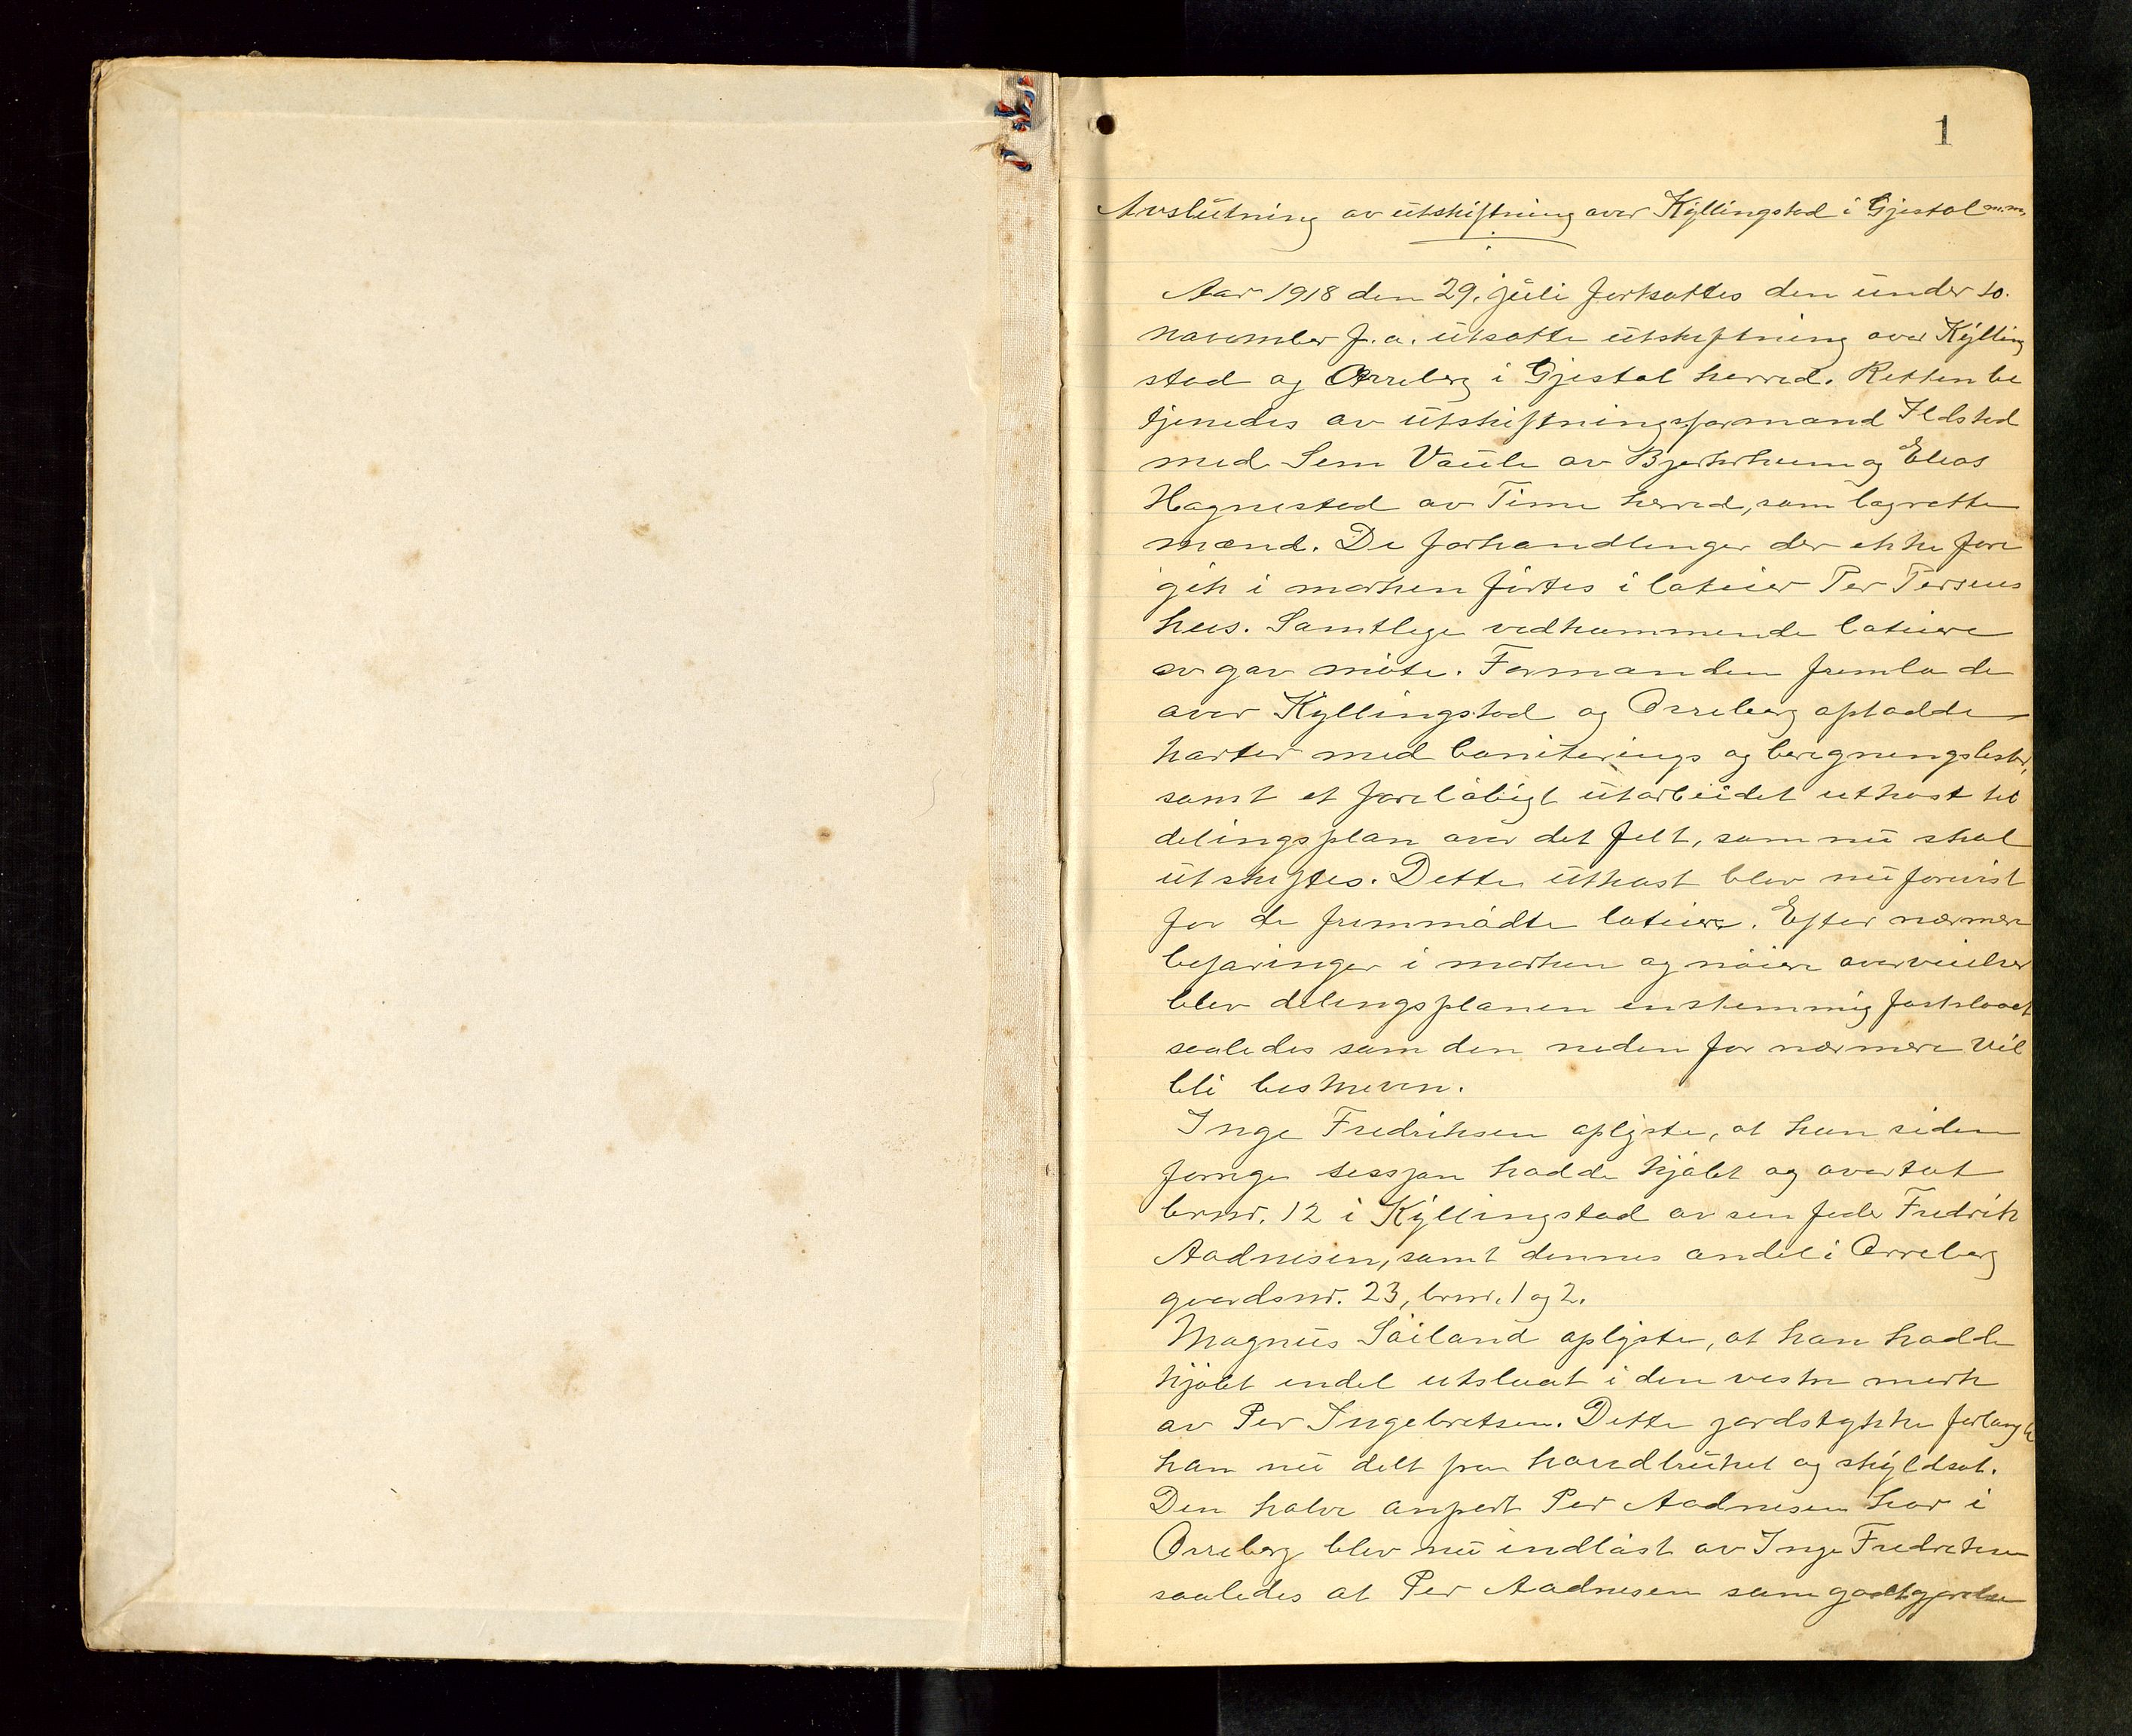 1
Avslutning av utskiftning over Kyllingstad i Gjestal m.m.
Aar 1918 den 29. juli fortsattes den under 10.
november f.a. utsatte utskiftning over Kylling
stad og Orreberg i Gjestal herred. Retten be
tjenedes av utskiftningsformand Ildsted
med Sem Vaule av Bjerkrheim og Elias
Hognestad av Time herred, som lagrette
mænd. De forhandlinger der ikke fore
gik i marken førtes i loteier Per Persens
hus. Samtlige vedkommende loteiere
av gav møte. Formanden fremla de
over Kyllingstad og Orreberg optadde
karter med boniterings og beregningslister,
samt et foreløbigt utarbeidet utkast til
delingsplan over det felt, som nu skal
utskiftes. Dette utkast blev nu forevist
for de fremmødte loteiere. Efter nærmere
befaringer i marken og nøiere overveielser
blev delingsplanen enstemmig fastslaaet
saaledes som den neden for nærmere vil
bli beskreven.
Inge Fredriksen oplyste, at han siden
forrige sessjon hadde kjøbt og overtat
brnr. 12 i Kyllingstad av sin fader Fredrik
Aadnesen, samt dennes andel i Orreberg
gaardsnr. 23, brnr. 1 og 2.
Magnus Søiland oplyste, at han hadde
kjøbt endel utslaat i den vestre mark
av Per Ingebretsen. Dette jordstykke forlangte
han nu delt fra hovedbruket og skyldsat.
Den halve anpart Per Aadnesen har i
Orreberg blev nu indløst av Inge Fredriksen
saaledes at Per Aadnesen som godtgjørelse